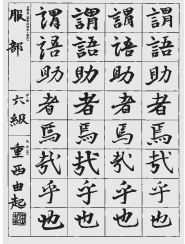 謂語助者焉哉乎也
謂語助者焉哉乎也
謂語助者焉哉乎也
謂語助者焉哉乎也
服部 六級 重西由起